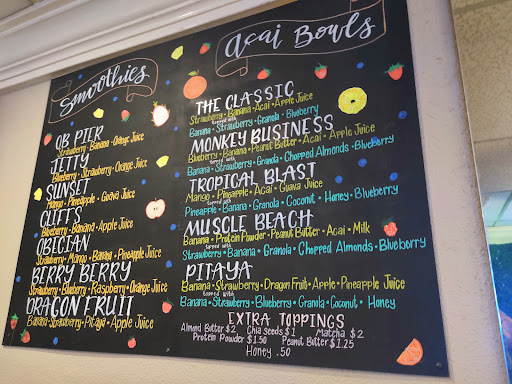 Smoothies
OB PIER
Strawberry • Banana • Orange Juice
JETTY
Blueberry • Strawberry • Orange Juice
SUNSET
Mango • Pineapple • Guava Juice
CLIFFS
Blueberry • Banana • Apple Juice
OBECIAN
Strawberry • Mango • Banana • Pineapple Juice
BERRY BERRY
Strawberry • Blueberry • Raspberry • Orange Juice
DRAGON FRUIT
Banana • Strawberry • Pitaya • Apple Juice
Acai Bowls
THE CLASSIC
Strawberry • Banana • Acai • Apple Juice
topped with
Banana • Strawberry • Granola • Blueberry
MONKEY BUSINESS
Blueberry • Banana • Peanut Butter • Acai • Apple Juice
topped with
Banana • Strawberry • Granola • Chopped Almonds • Blueberry
TROPICAL BLAST
Mango • Pineapple • Acai • Guava Juice
topped with
Pineapple • Banana • Granola • Coconut • Honey • Blueberry
MUSCLE BEACH
Banana • Protein Powder • Peanut Butter • Acai • Milk
topped with
Strawberry • Banana • Granola • Chopped Almonds • Blueberry
PITAYA
Banana • Strawberry • Dragon Fruit • Apple • Pineapple Juice
topped with
Banana • Strawberry • Blueberry • Granola • Coconut • Honey
EXTRA TOPPINGS
Almond Butter $2 Chia Seeds $1 Matcha $2
Protein Powder $1.50 Peanut Butter $1.25
Honey .50